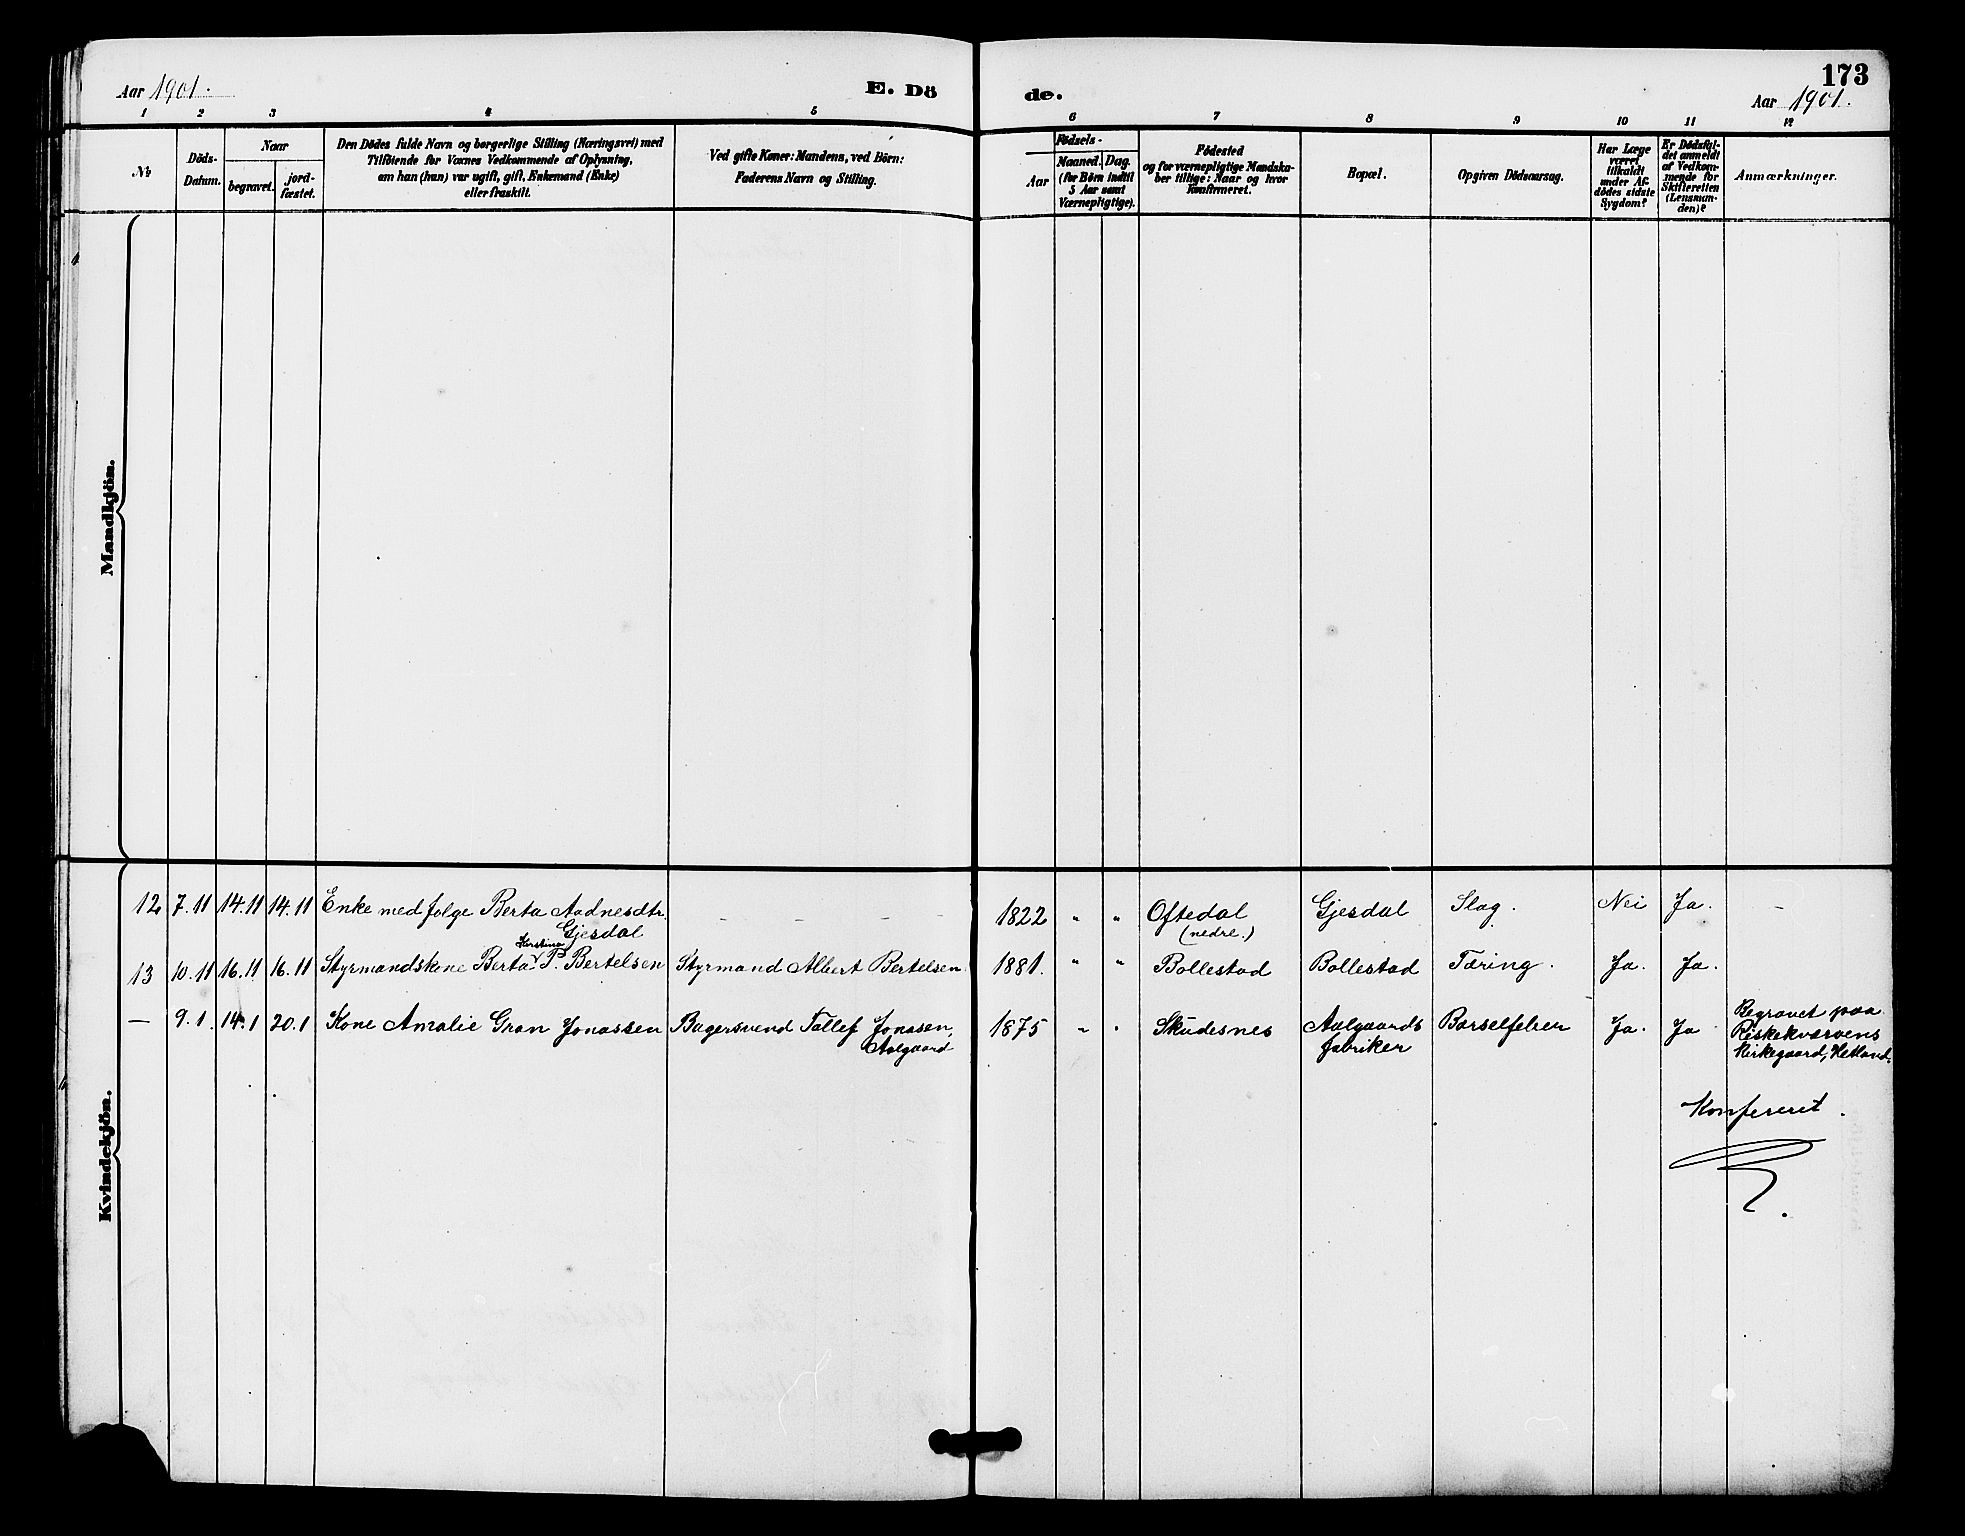 Aar 1901.
E. Dö
de.
173
Aar 1901.
1 2 3 4 5 6 7 8 9 10 11 12
No
Döds-
Datum.
Naar
begravet.
jord-
fæstet.
Den Dödes fulde Navn og borgerlige Stilling (Næringsvei) med
Tilföiende for Væmes Vedkommende af Oplysning,
om han (hun) var ugift, gift, Enkemand (Enke)
eller fraskilt.
Ved gifte Koner: Mandens, ved Börn:
Faderens Navn og Stilling.
Födsels-
Aar
Maaned. Dag.
(for Börn indtil
5 Aar samt
Værnepligtige).
Födested
og for værnepligtige Mandska-
ber tillige: Naar og hvor
konfirmeret.
Bopæl.
Opgiven Dödsaarsag.
Har Læge
været
tilkaldt
under Af-
dödes sidste
Sygdom?
Er Dödsfal-
det anmeldt
af Vedkom-
mende for
Skifteretten
(Lensman-
den)?
Anmærkninger.
Mandkjön.
Kvindekjön.
12 7.11 14.11 14.11 Enke med følge Berta Aadnesdtr. – – – – 1822 " " Oftedal Gjesdal Slag. Nei Ja. –
Gjesdal
(nedre.)
Kirstine
13 10.11 16.11 16.11 Styrmandskone Berta P. Bertelsen Styrmand Albert Bertelsen. 1881. " " Bollestad Bollestad Tæring. Ja. Ja.
– 9.1. 14.1 20.1 Kone Amalie Gran Jonassen Bagersvend Tallef Jonasen, 1875 " " Skudesnes Aalgaards Barselfeber Ja. Ja. Begravet paa
Aalgaard
fabriker
Riskekværvens
Kirkegaard, Hetland.
Konfereret.